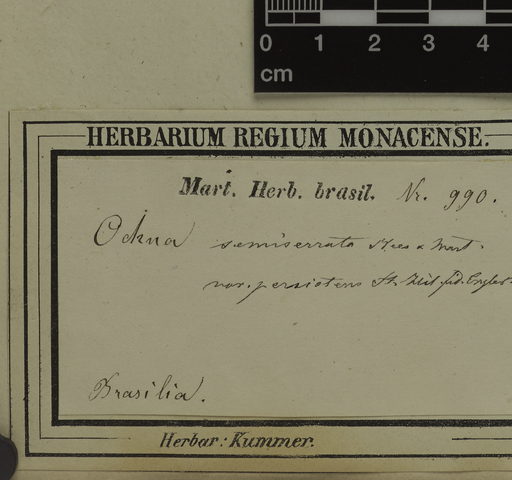 0 1 2 3 4
cm
HERBARIUM REGIUM MONACENSE.
Mart. Herb. brasil. Nr. 990.
Ochna semiserrata Nees & Mart.
var. persistens St. Hil. fid. Engler
Brasilia.
Herbar: Kummer.